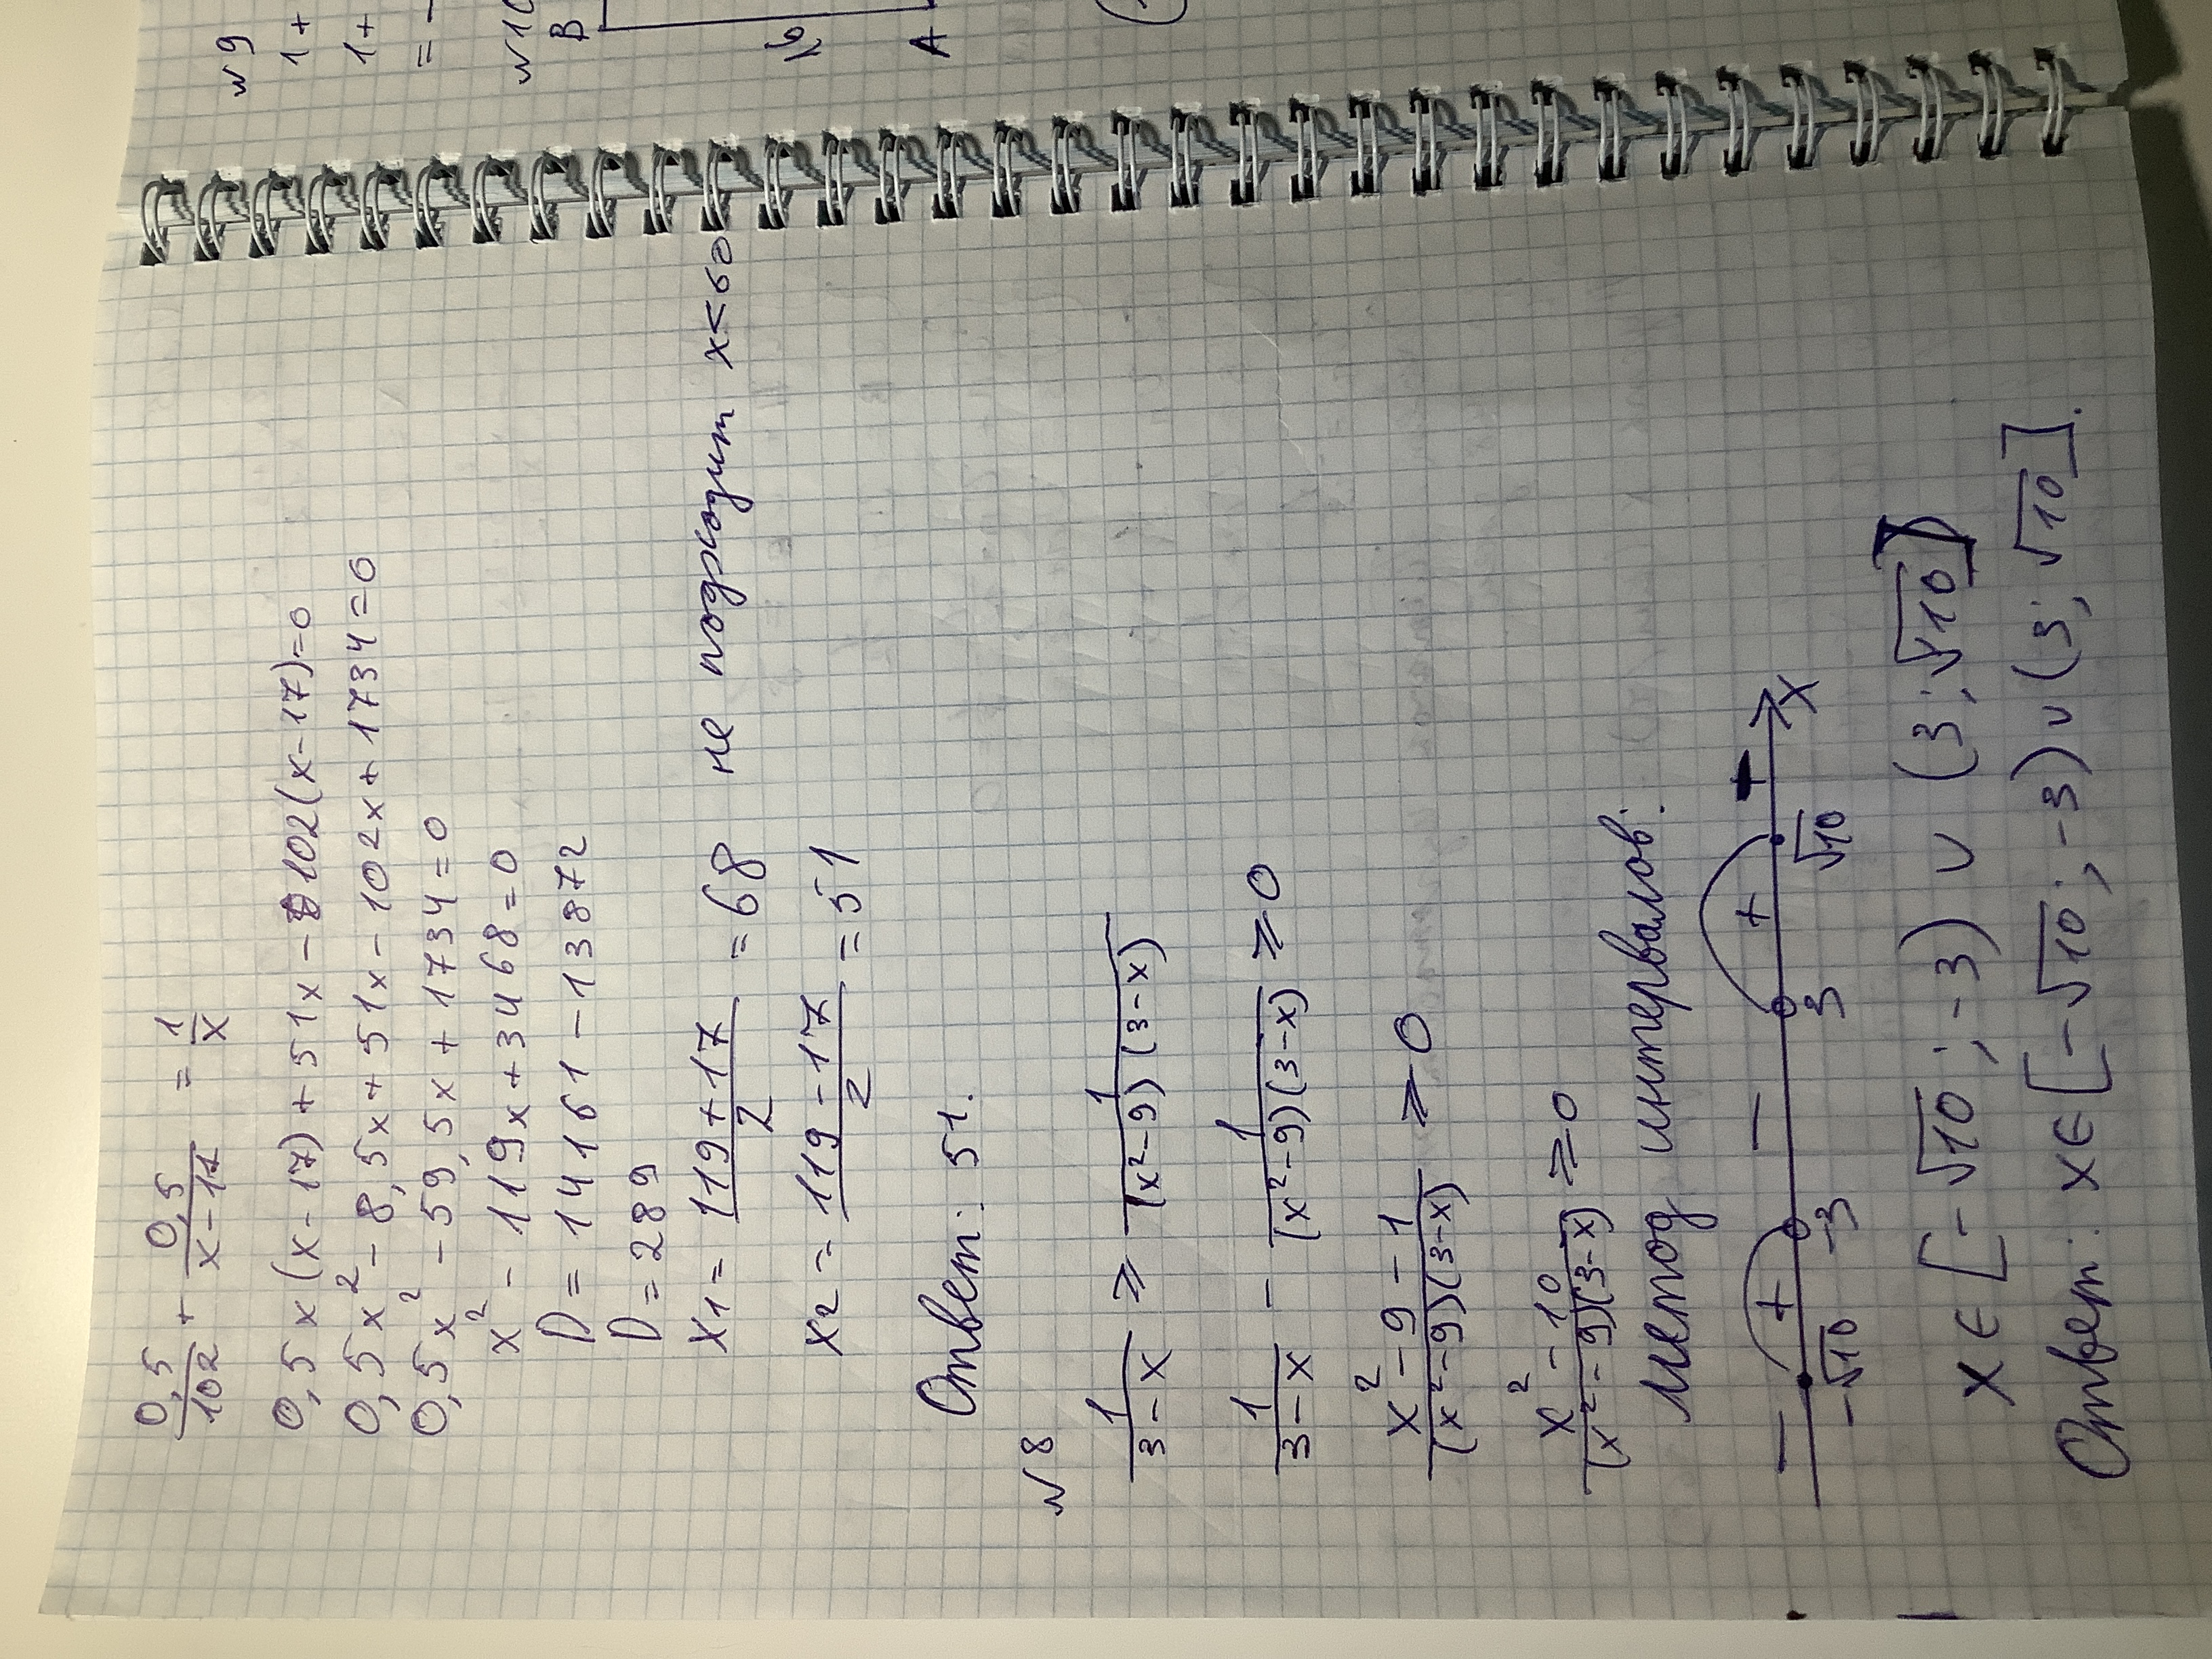 0,5/102 + 0,5/(x-17) = 1/x
0,5x(x-17)+51x-102(x-17)=0
0,5x²-8,5x+51x-102x+1734=0
0,5x²-59,5x+1734=0
x²-119x+3468=0
D=14161-13872
D=289
x1=(119+17)/2=68 не подходит x<60
x2=(119-17)/2=51
Ответ: 51.
№8
1/(3-x) ⩾ 1/((x²-9)(3-x))
1/(3-x) - 1/((x²-9)(3-x)) ⩾ 0
(x²-9-1)/((x²-9)(3-x)) ⩾ 0
(x²-10)/((x²-9)(3-x)) ⩾ 0
метод интервалов:
- + - + -
-√10 -3 3 √10 x
x∈[-√10;-3)∪(3;√10]
Ответ: x∈[-√10;-3)∪(3;√10].
№9
1+
1+
= -
№10
B
16
A